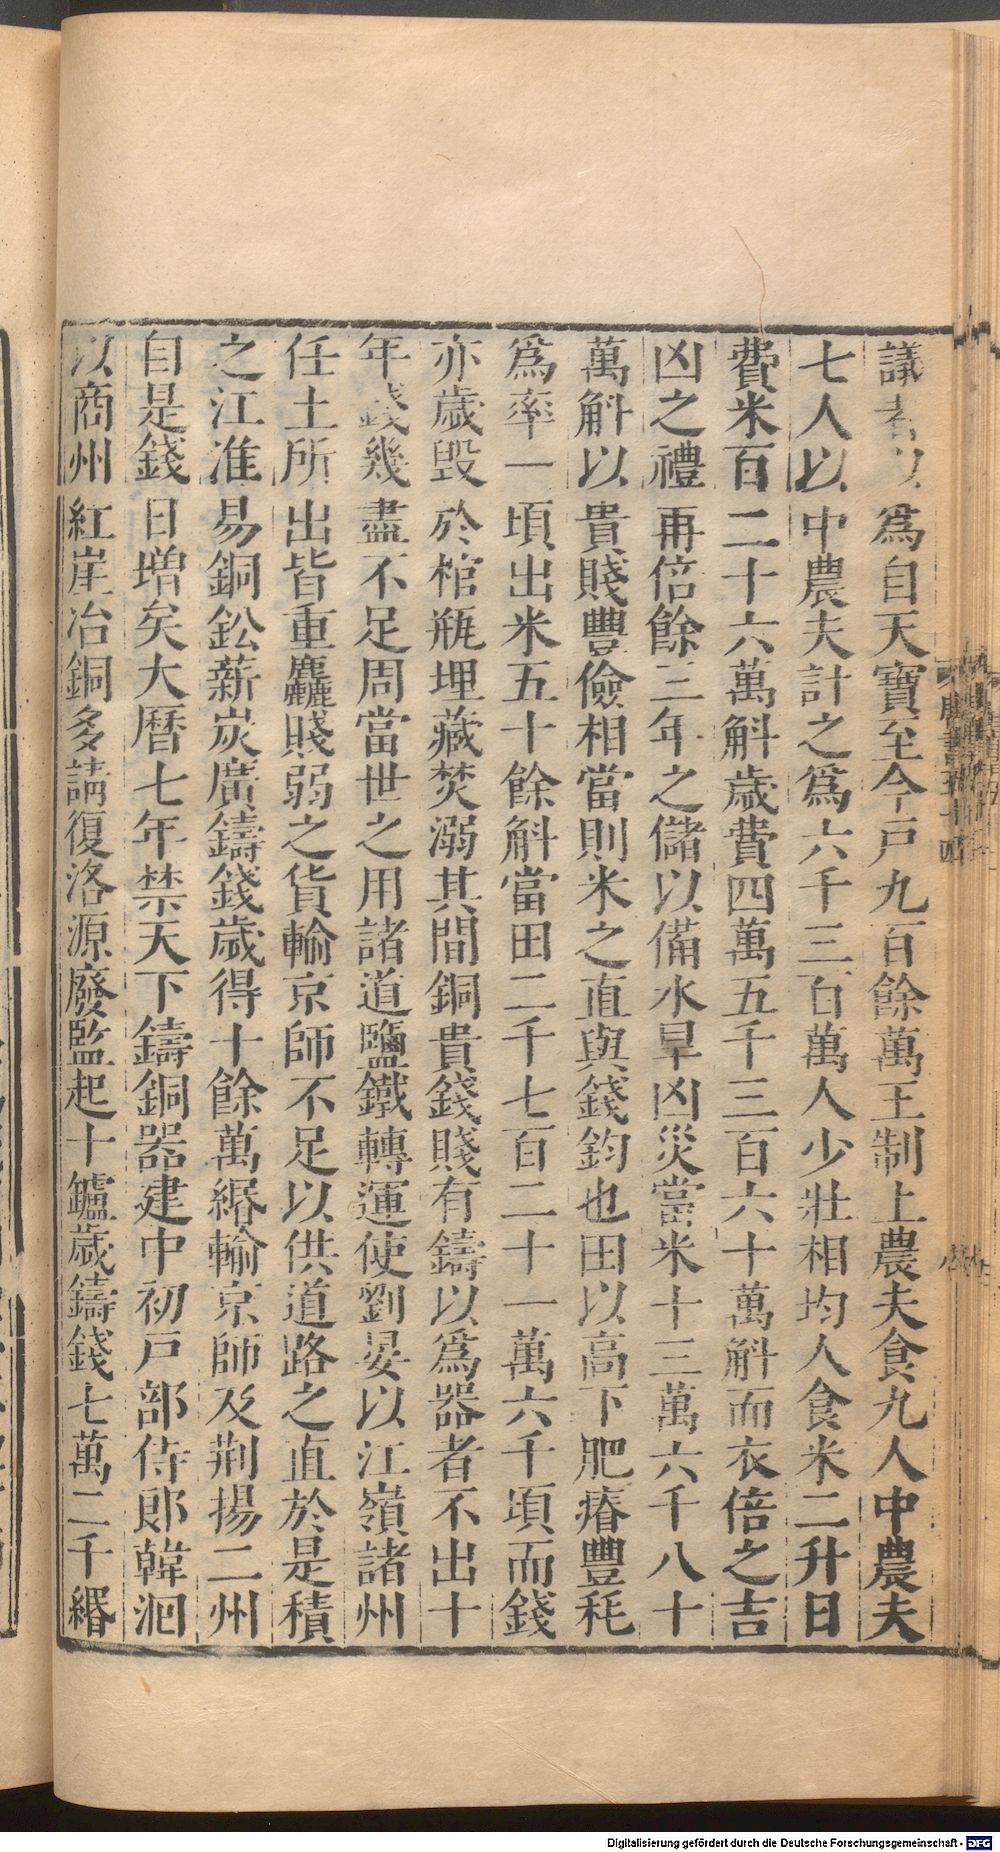 議者以為自天寶至今戸九百餘萬王制上農夫食九人中農夫
七人以中農夫計之為六千三百萬人少壯相均人食米二升日
費米百二十六萬斛歲費四萬五千三百六十萬斛而衣倍之吉
凶之禮再倍餘三年之儲以備水旱凶災當米十三萬六千八十
萬斛以貴賤豐儉相當則米之直與錢鈞也田以高下肥瘠豐耗
為率一頃出米五十餘斛當田二千七百二十一萬六千頃而錢
亦歲毀於棺瓶埋藏焚溺其間銅貴錢賤有鑄以為器者不出十
年錢幾盡不足周當世之用諸道鹽鐵轉運使劉晏以江嶺諸州
任土所出皆重麤賤弱之貨輸京師不足以供道路之直於是積
之江淮易銅鈆薪炭廣鑄錢歲得十餘萬緡輸京師及荆揚二州
自是錢日増矣大曆七年禁天下鑄銅器建中初戸部侍郎韓洄
以商州紅崖冶銅多請復洛源廢監起十鑪歲鑄錢七萬二千緡
Digitalisierung gefördert durch die Deutsche Forschungsgemeinschaft - DFG